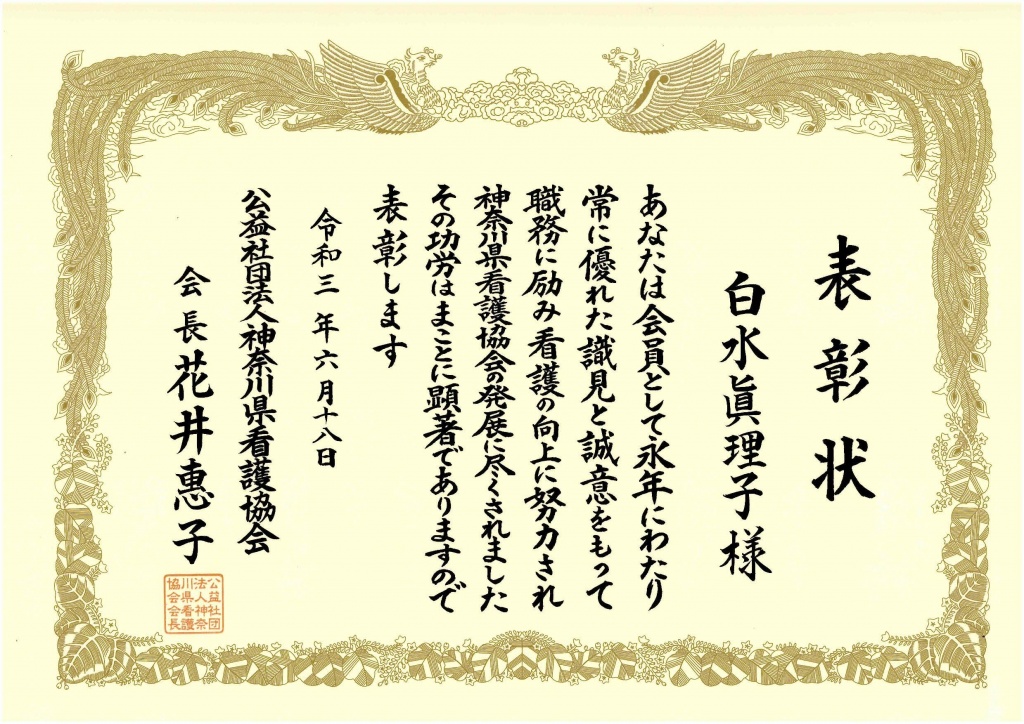 表彰状
白水眞理子様
あなたは会員として永年にわたり
常に優れた識見と誠意をもって
職務に励み看護の向上に努力され
神奈川県看護協会の発展に尽くされました
その功労はまことに顕著でありますので
表彰します
令和三年六月十八日
公益社団法人神奈川県看護協会
会長花井惠子
公益社団
法人神奈
川県看護
協会会長